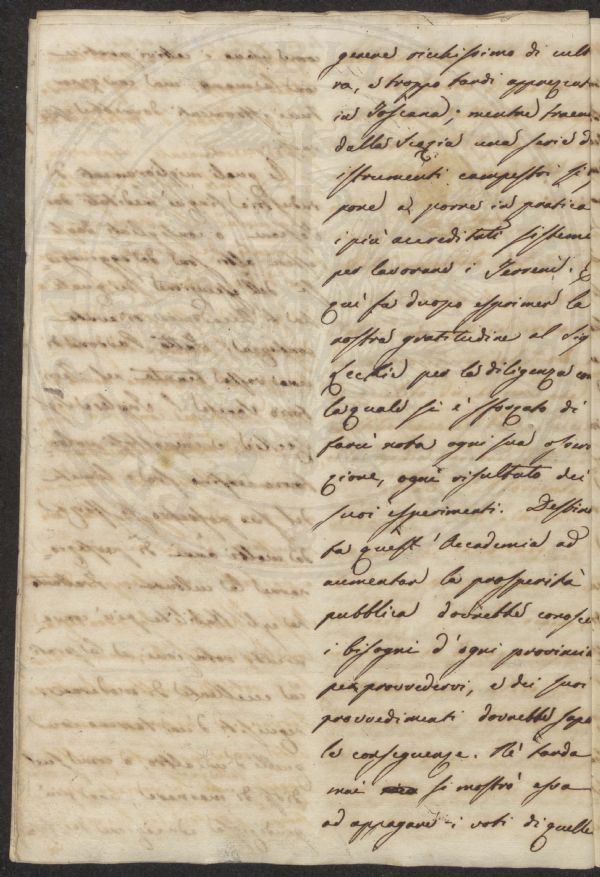 genere ricchissimo di cult
ra, e troppo tardi apprezzat
in Toscana; mentre traen
dalla Scozia una serie di
istrumenti campestri si
pone a porre in pratica
i più accreditati sistemi
per lavorare i Terreni. E
quì fa duopo esprimere la
nostra gratitudine al Sig
per la diligenza con
la quale si è sforzato di
farci nota ogni sua osserv
zione, ogni risultato dei
suoi esperimenti. Destina
ta quest' Accademia ad
aumentar la prosperità
pubblica dovrebbe conosce
i bisogni d'ogni provincia
per provvedervi, e dei suoi
provvedimenti dovrebbe sape
le conseguenze. Nè tarda
mai si mostrò essa
ad appagare i voti di quelle